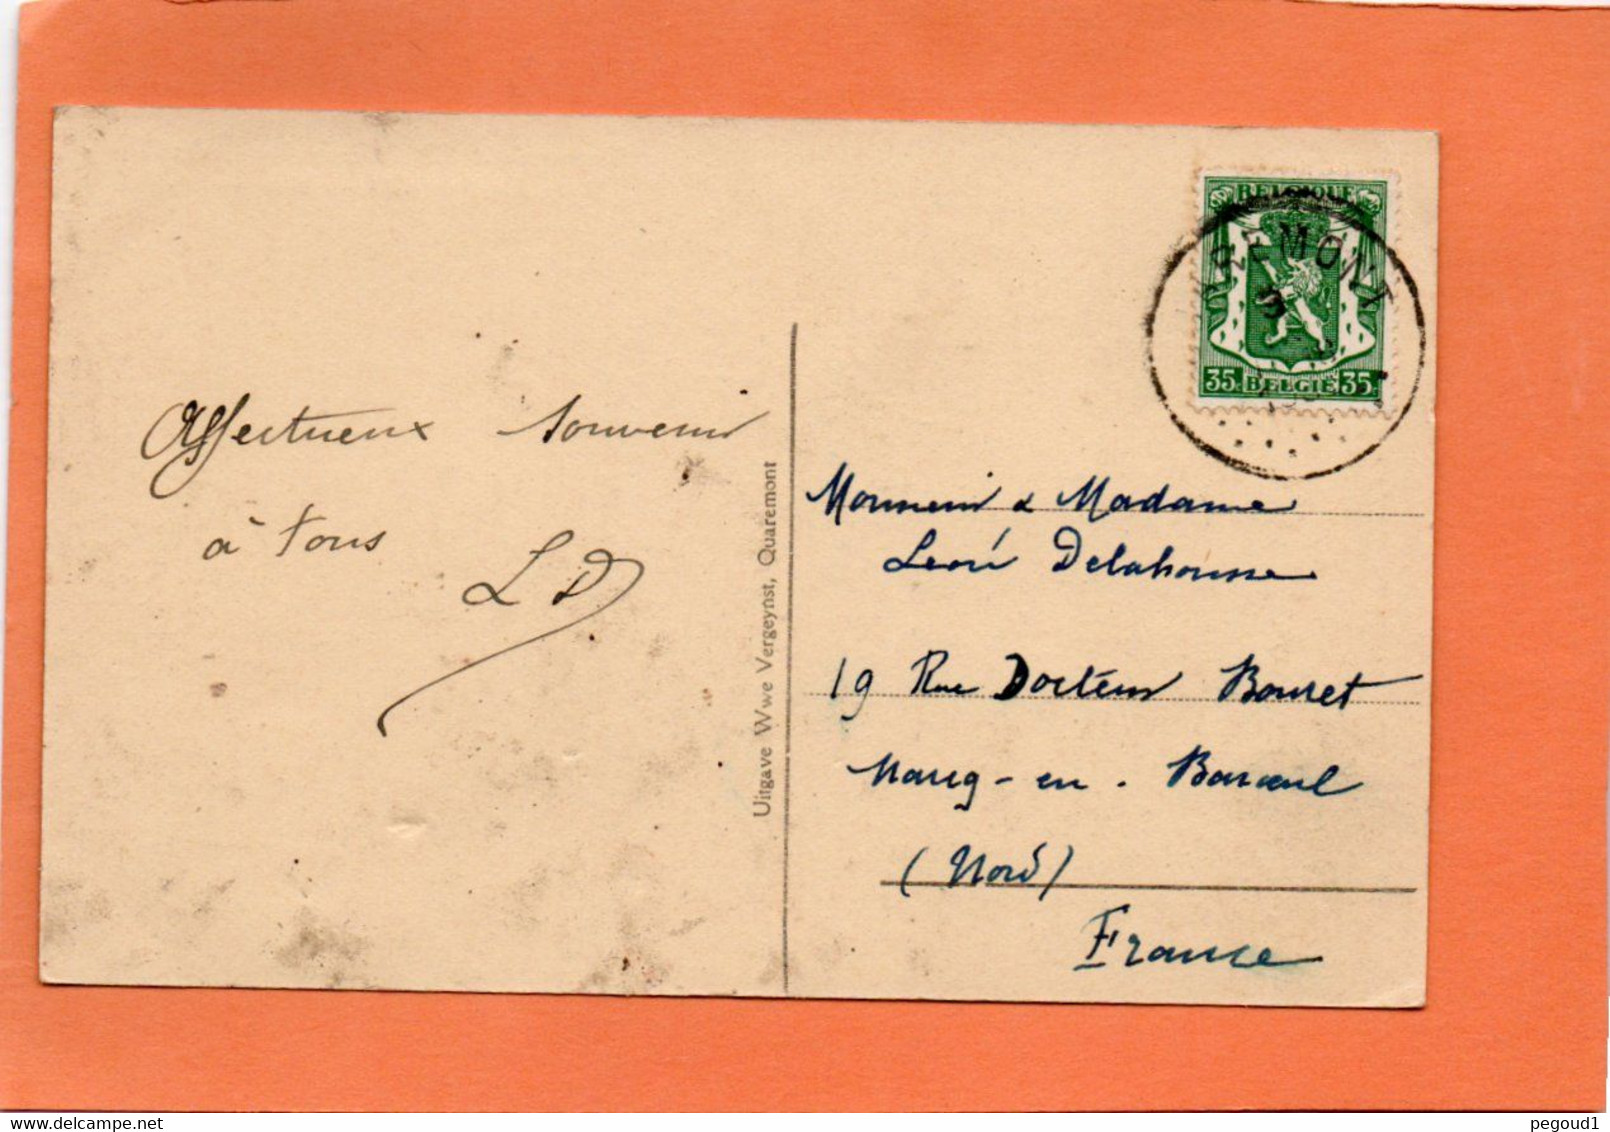 BELGIQUE
AREMONT
35c BELGIË 35c
Affectueux souvenir
à tous
L D
Uitgave Wwe Vergeynst, Quaremont
Monsieur & Madame
Léon Delahousse
19 Rue Docteur Bouret
Marcq-en-Baroeul
(Nord)
France
delcampe.net
pegoud1